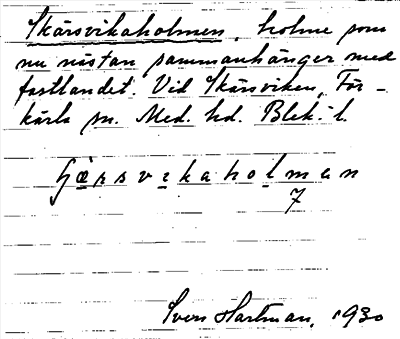 Skärsvikaholmen, holme som
nu nästan sammanhänger med
fastlandet. Vid Skärsviken, För-
kärla sn. Med. hd. Blek. l.
ʃæʀsvikaholman
7
Sven Hartman, 1930